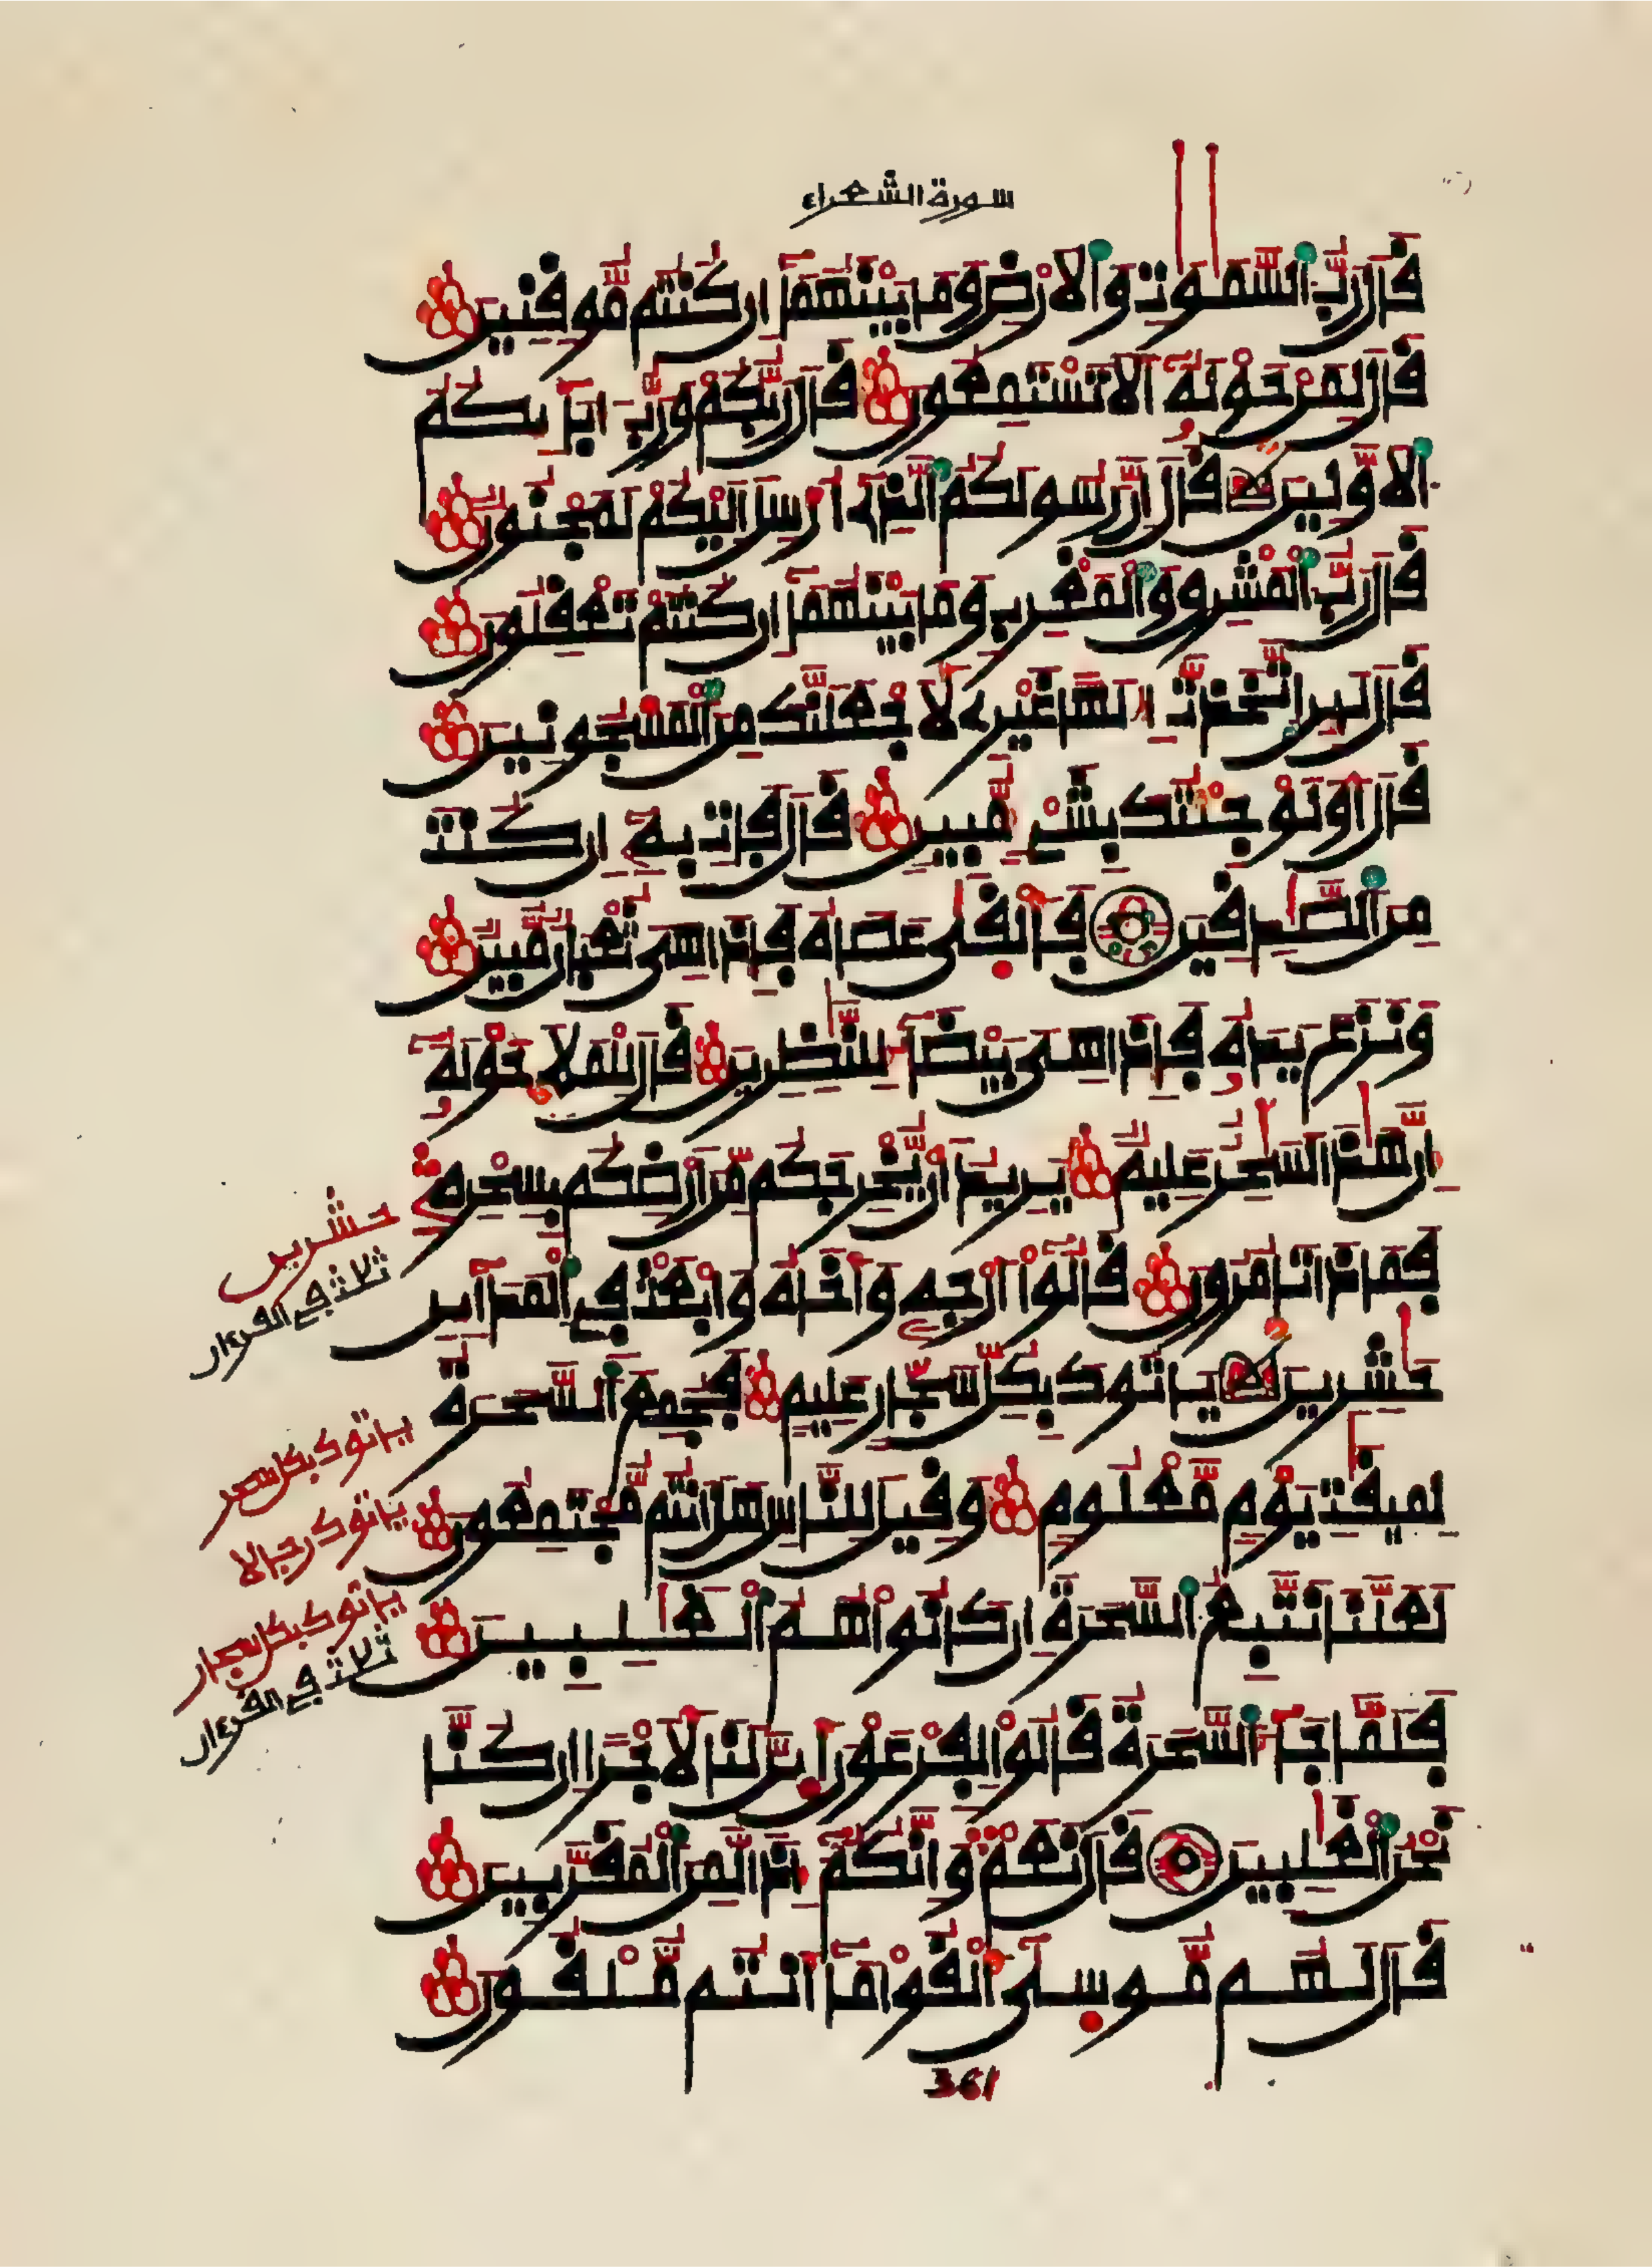 سورة الشعراء
قال رب السموت والارض وما بينهما ان كنتم موقنين
قال لمن حوله الا تستمعون قال ربكم ورب ابايكم
الاولين قال ان رسولكم الذي ارسل اليكم لمجنون
قال رب المشرق والمغرب وما بينهما ان كنتم تعقلون
قال لين اتخذت الها غيري لاجعلنك من المسجونين
قال اولو جئتك بشيء مبين قال فات به ان كنت
من الصدقين فالقى عصاه فاذا هي ثعبان مبين
ونزع يده فاذا هي بيضاء للنظرين قال للملا حوله
ان هذا لسحر عليم يريد ان يخرجكم من ارضكم بسحره
فماذا تامرون قالوا ارجه واخاه وابعث في المداين
حشرين ياتوك بكل سحار عليم فجمع السحرة
لميقت يوم معلوم وقيل للناس هل انتم مجتمعون
لعلنا نتبع السحرة ان كانوا هم الغلبين
فلما جاء السحرة قالوا لفرعون اين لنا لاجرا ان كنا
نحن الغلبين قال نعم وانكم اذا لمن المقربين
قال لهم موسى القوا ما انتم ملقون
حشرين
ثلاث في القرءان
ياتوك بكل سحر
ياتوك رجالا
ياتوك بكل سحار
ثلاث في القرءان
361